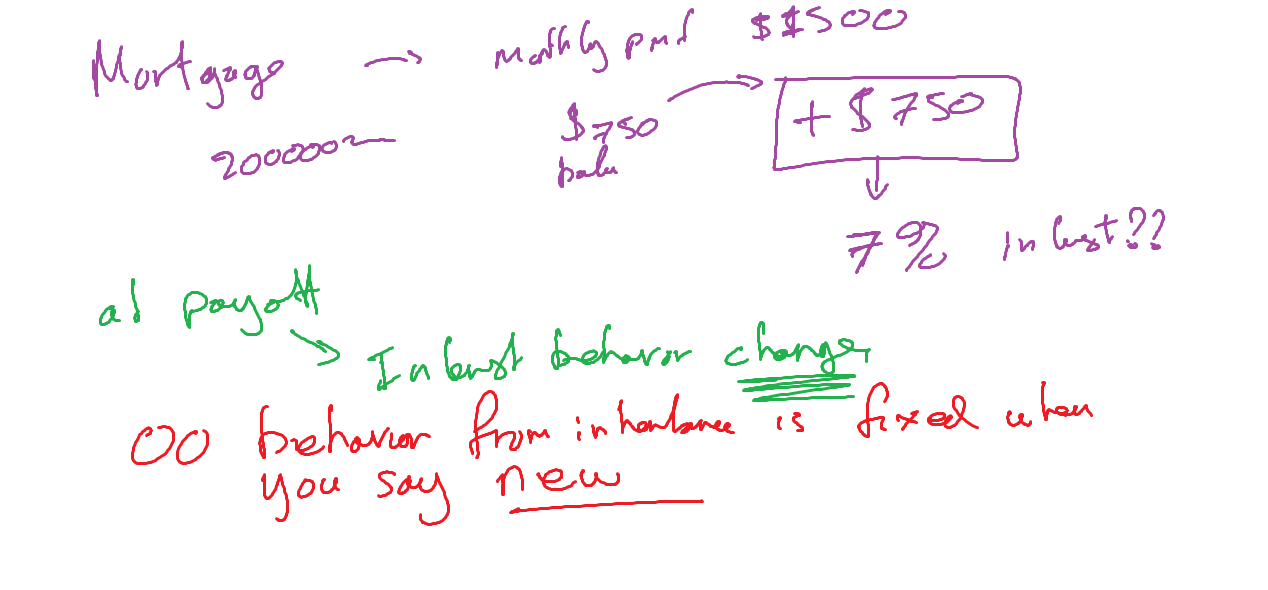 Mortgage → monthly pmt $1500
200000 $750 → + $750
7% interest??
at payoff
→ Interest behavior changes
OO behavior from inheritance is fixed when
you say new